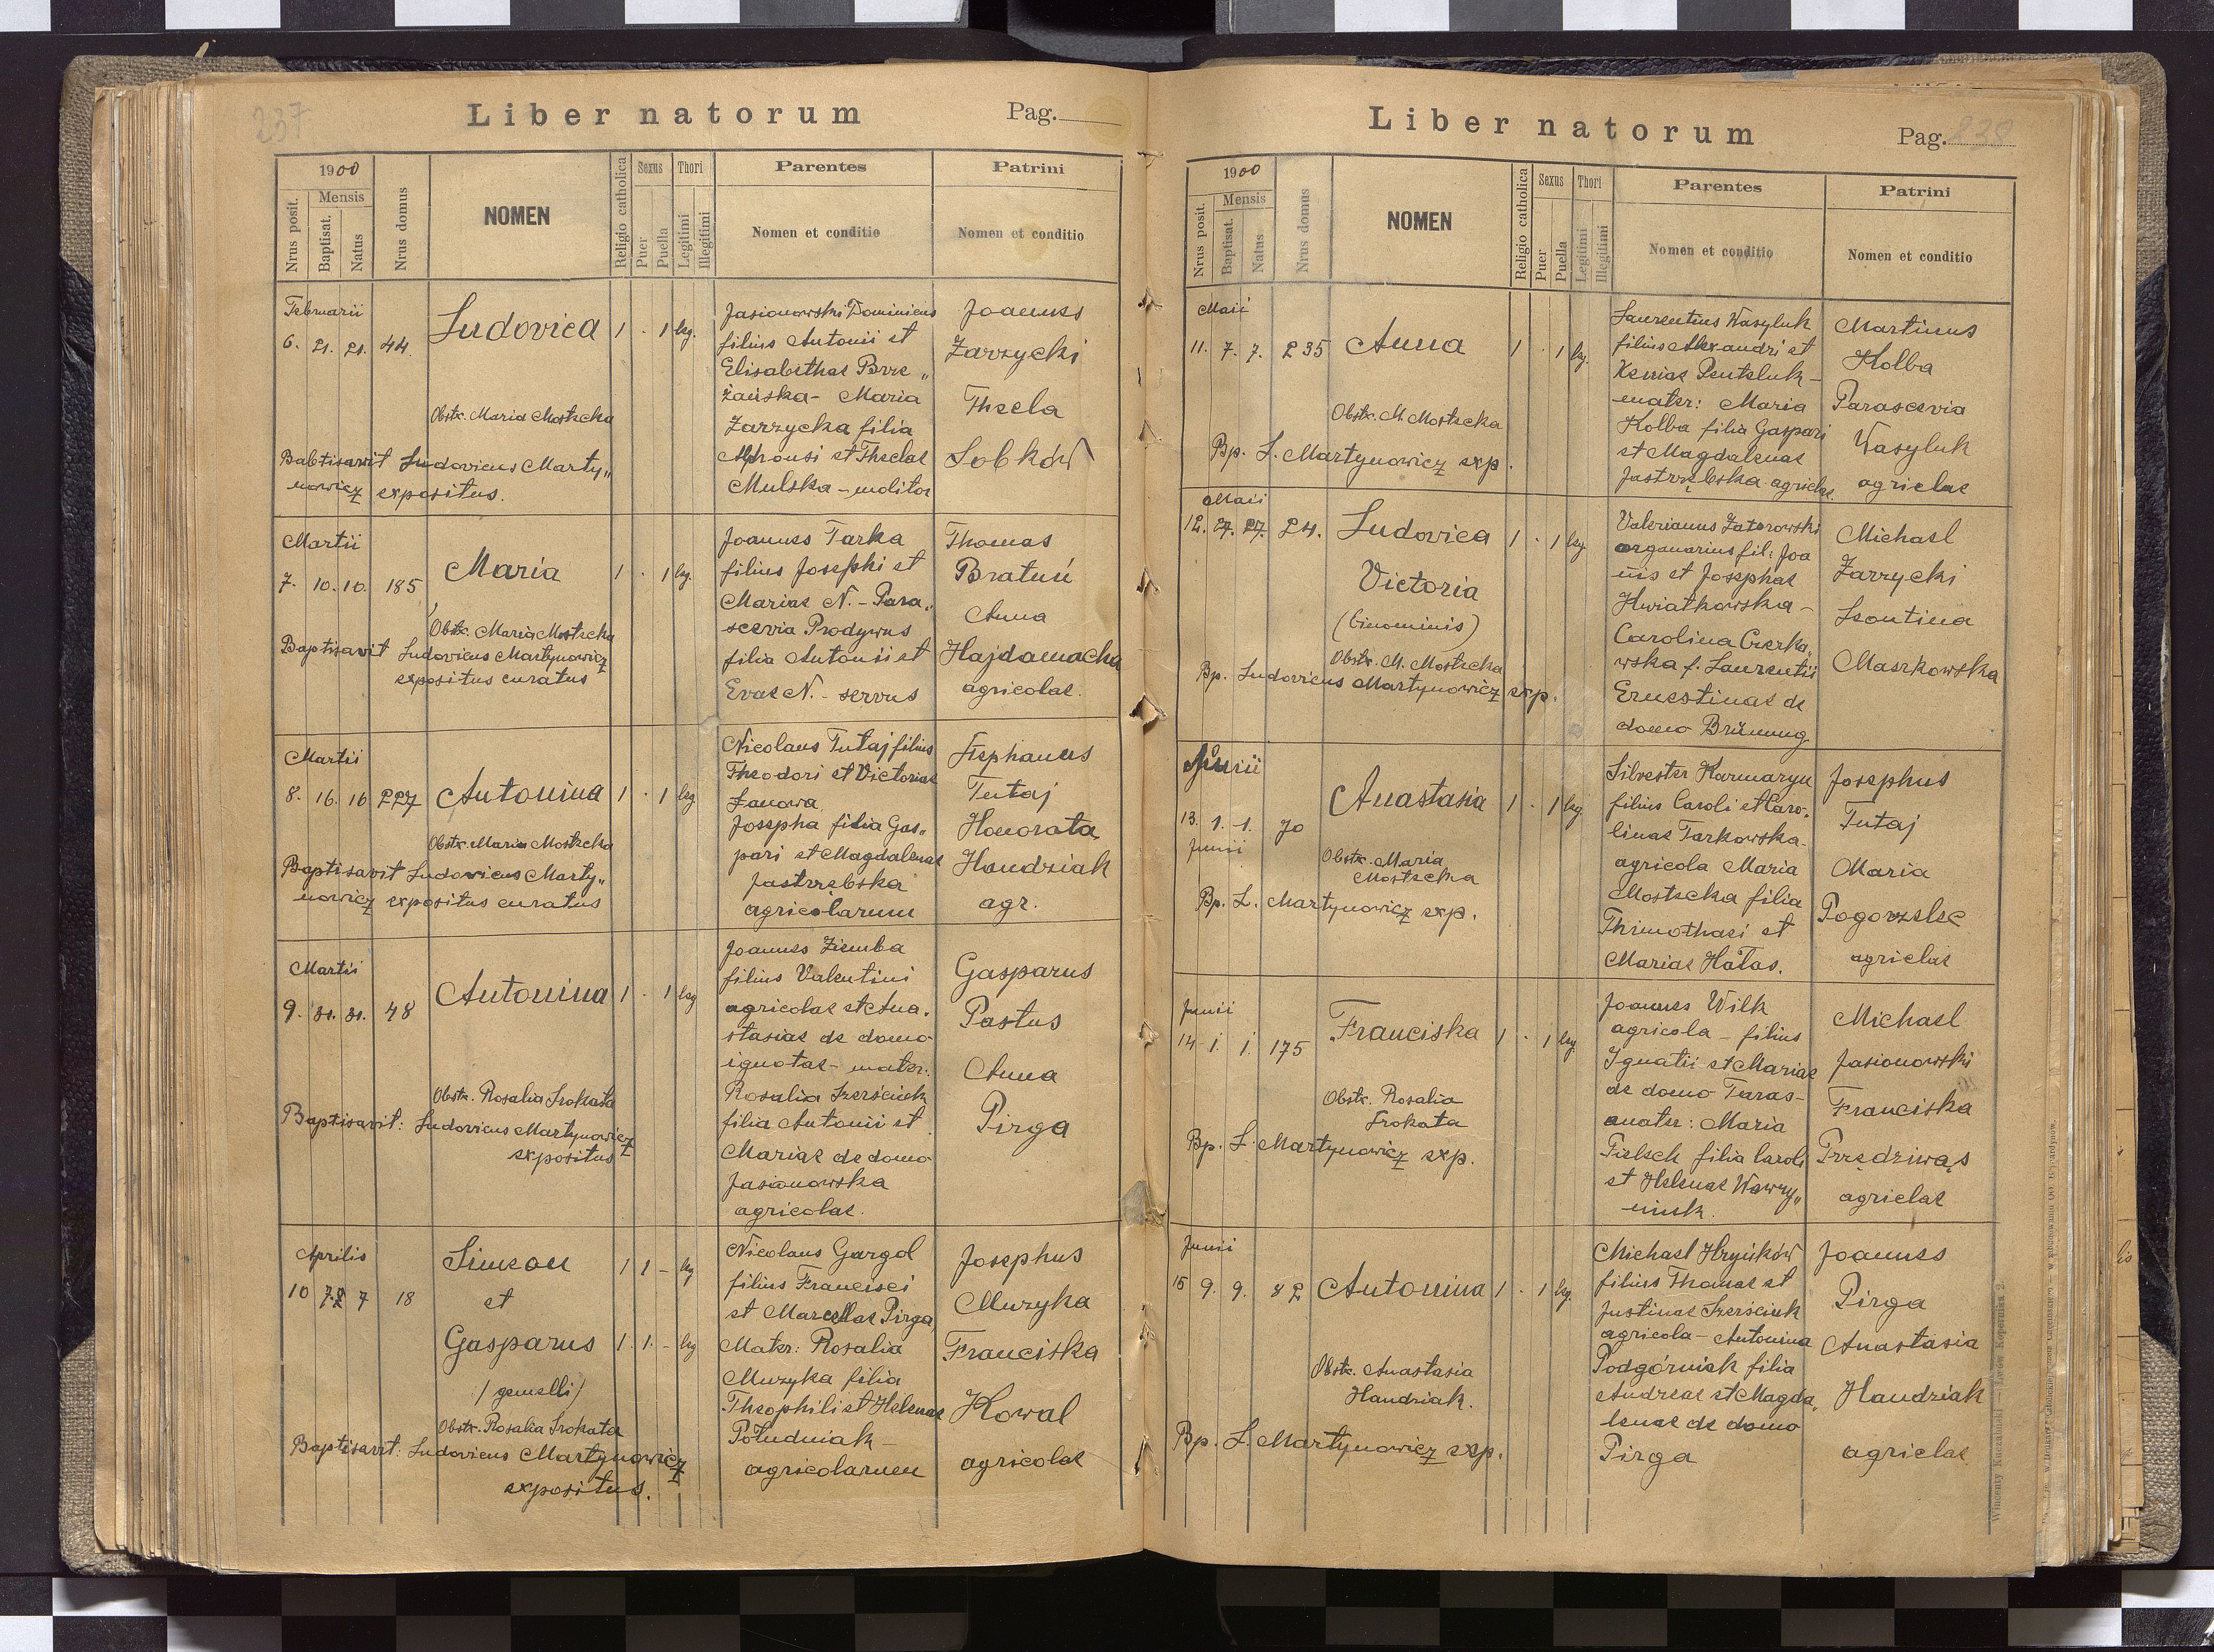 237
Liber natorum
Pag.
1900
Mensis
Nrus posit.
Baptisat.
Natus
Nrus domus
NOMEN
Religio catholica
Sexus
Puer
Puella
Thori
Legitimi
Illegitimi
Parentes
Nomen et conditio
Patrini
Nomen et conditio
Februarii
6. 21. 21. 44.
Ludovica 1 . 1 leg.
Obstx. Maria Mostecka
Babtisavit Ludovicus Marty„
nowicz expositus.
Jasionowski Dominicus
filius Antonii et
Elisabethae Brze„
żańska - Maria
Zarzycka filia
Alphonsi et Theclae
Mulska - molitor
Joannes
Zarzycki
Thecla
Sobków
Martii
7. 10. 10. 185
Maria 1 . 1 leg.
Obstx. Maria Mostecka
Baptisavit Ludovicus Martynowicz
expositus curatus
Joannes Tarka
filius Josephi et
Mariae N. - Para„
scevia Prodywus
filia Antonii et
Evae N. - servus
Thomas
Bratuń
Anna
Hajdamacha
agricolae.
Martii
8. 16. 16 227
Antonina 1 . 1 leg.
Obstx. Maria Mostecka
Baptisavit Ludovicus Marty„
nowicz expositus curatus
Nicolaus Tutaj filius
Theodori et Victoriae
Janowa
Josepha filia Gas„
pari et Magdalenae
Jastrzębska
agricolarum
Stephanus
Tutaj
Honorata
Handziak
agr.
Martii
9. 31. 31. 48
Antonina 1 . 1 leg
Obstx. Rosalia Srokata
Baptisavit: Ludovicus Martynowicz
expositus
Joannes Ziemba
filius Valentini
agricolae et Ana.
stasiae de domo
ignotae - mater:
Rosalia Szerściuk
filia Antonii et
Mariae de domo
Jasionowska
agricolae.
Gasparus
Pastus
Anna
Pirga
Aprilis
10 7.8 7 18
Simeon 1 1 - leg
et
Gasparus 1. 1. - leg
/ gemelli /
Obstx. Rosalia Srokata
Baptisavit: Ludovicus Martynowicz
expositus.
Nicolaus Gargol
filius Francisci
et Marcellae Pirga
Mater: Rosalia
Muzyka filia
Theophili et Helenae
Południak -
agricolarum
Josephus
Muzyka
Franciska
Kowal
agricolae
Liber natorum
Pag. 238
1900
Mensis
Nrus posit.
Baptisat.
Natus
Nrus domus
NOMEN
Religio catholica
Sexus
Puer
Puella
Thori
Legitimi
Illegitimi
Parentes
Nomen et conditio
Patrini
Nomen et conditio
Maii
11. 7. 7. 235
Anna 1 . 1 leg.
Obstx. M. Mostecka
Bp. L. Martynowicz exp.
Laurentius Wasyluk
filius Alexandri et
Xeniae Penteluk -
mater: Maria
Kolba filia Gaspari
et Magdalenae
Jastrzębska agriclae.
Martinus
Kolba
Parascevia
Wasyluk
agriclae
Maii
12. 27. 27. 24.
Ludovica 1 . 1 leg.
Victoria
(binominis)
Obstx. M. Mostecka
Bp. Ludovicus Martynowicz exp.
Valerianus Zatorowski
organarius fil: Joa
nis et Josephae
Kwiatkowska -
Carolina Czerko„
wska f. Laurentii
Ernestinae de
domo Brünung
Michael
Zarzycki
Leontina
Maszkowska
Junii
13. 1. 1. 70
Junii
Anastasia 1 . 1 leg.
Obstx. Maria
Mostecka
Bp. L. Martynowicz exp.
Silvester Karmaryn
filius Caroli et Caro.
linae Tarkowska -
agricola Maria
Mostecka filia
Thimothaei et
Mariae Hałas.
Josephus
Tutaj
Maria
Pogorzelec
agriclae
Junii
14 1. 1. 175
Franciska 1 . 1 leg.
Obstx. Rosalia
Srokata
Bp. L. Martynowicz exp.
Joannes Wilk
agricola - filius
Ignatii et Mariae
de domo Taras -
mater: Maria
Tielech filia Caroli
et Helenae Wawry„
niuk.
Michael
Jasionowski
Franciska
Przędziwąs
agriclae
Junii
15 9. 9. 82
Antonina 1 . 1 leg.
Obstx. Anastasia
Handziak.
Bp. L. Martynowicz exp.
Michael Hryńków
filius Thomae et
Justinae Szerściuk
agricola - Antonina
Podgórniak filia
Andreae et Magda„
lenae de domo
Pirga
Joannes
Pirga
Anastasia
Handziak
agriclae